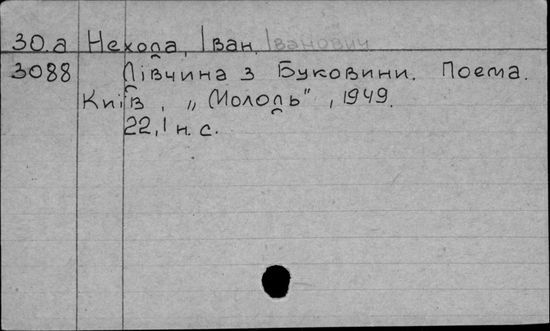 30.а Нехода, Іван Іванович
3088 Дівчина з Буковини. Поема.
Київ, „Молодь", 1949.
22,1 н. с.